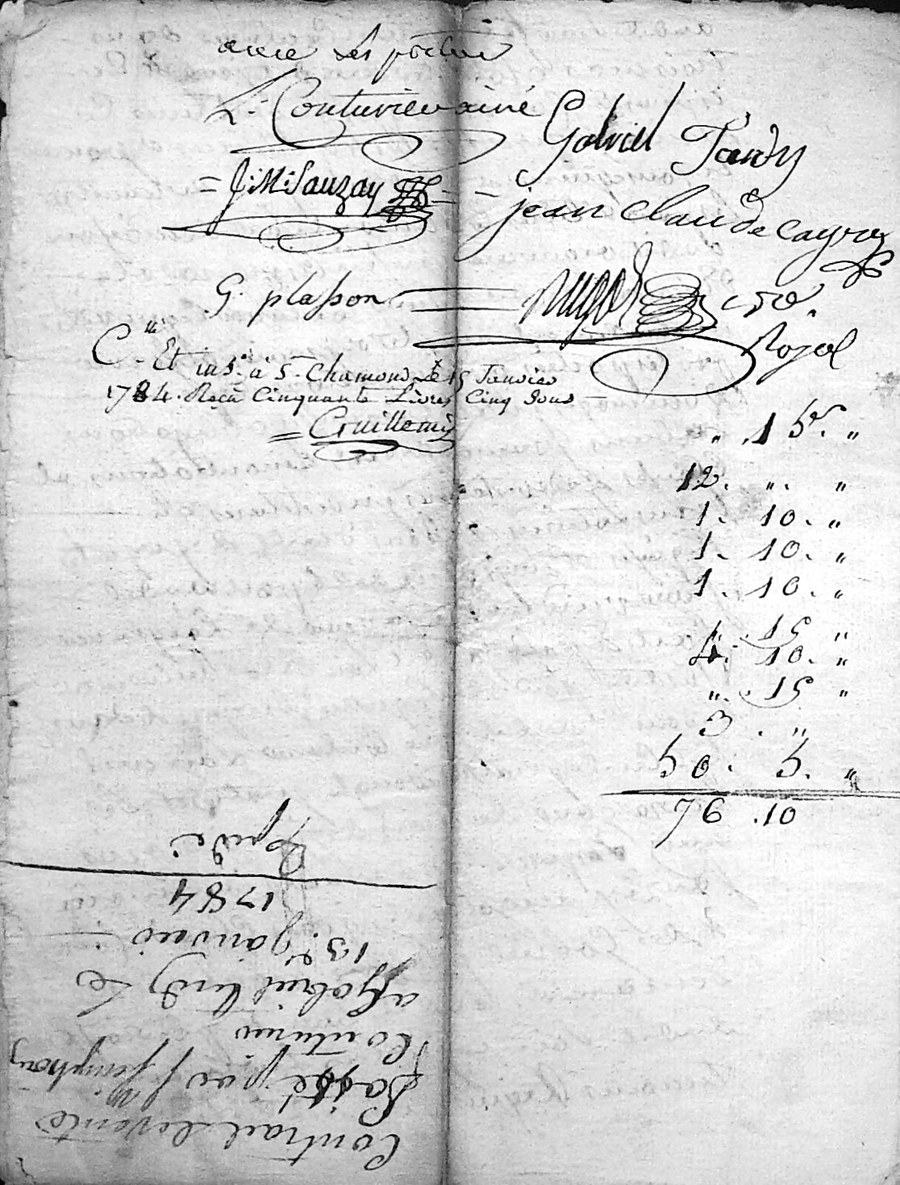 avec les parties
L. Couturier ainé
Gabriel Tardy
J: M: Sauzay
jean Claude Cayre
G. plasson
Royal
C. lé Et insé. à St. Chamond Le 15 Janvier
1784. Reçu Cinquante Livres Cinq Sous
" 15 "
12. " "
1. 10. "
1. 10. "
1. 10. "
" 15 "
4. 10. "
" 15 "
3 . "
50. 5. "
76 .10
Contrat de vente
Passé par
Couturier
a Gabriel Tardy Le
13e. janvier
1784
Expedié